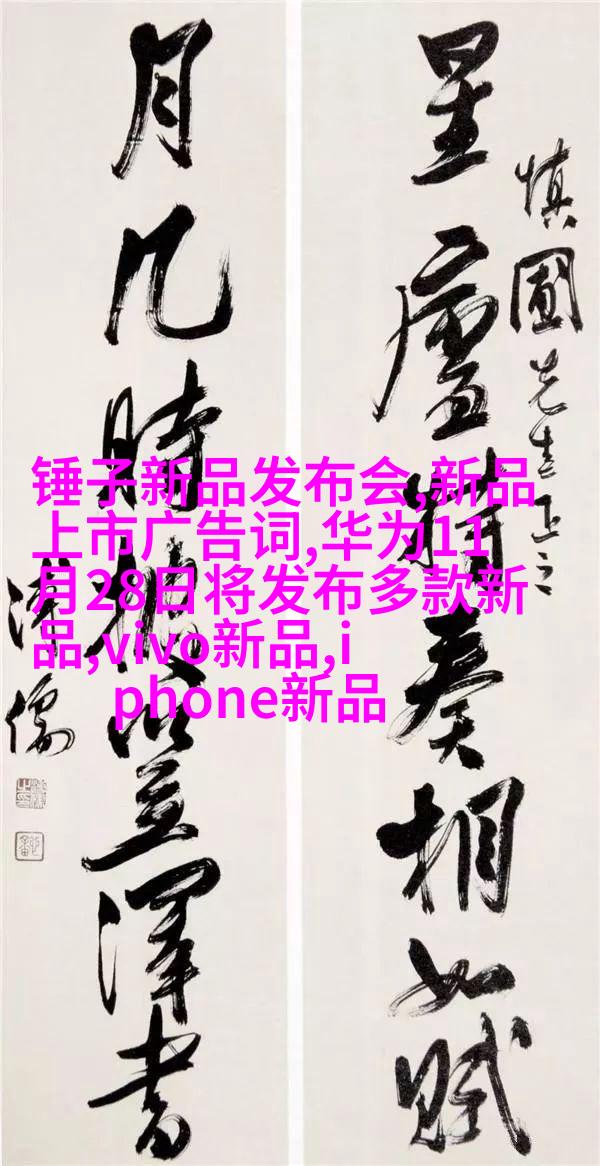 慎圃先生正之
星廬特奏相如賦
月几時披笠澤書
溥儒
锤子新品发布会,新品
上市广告词,华为11
月28日将发布多款新
品,vivo新品,i
phone新品